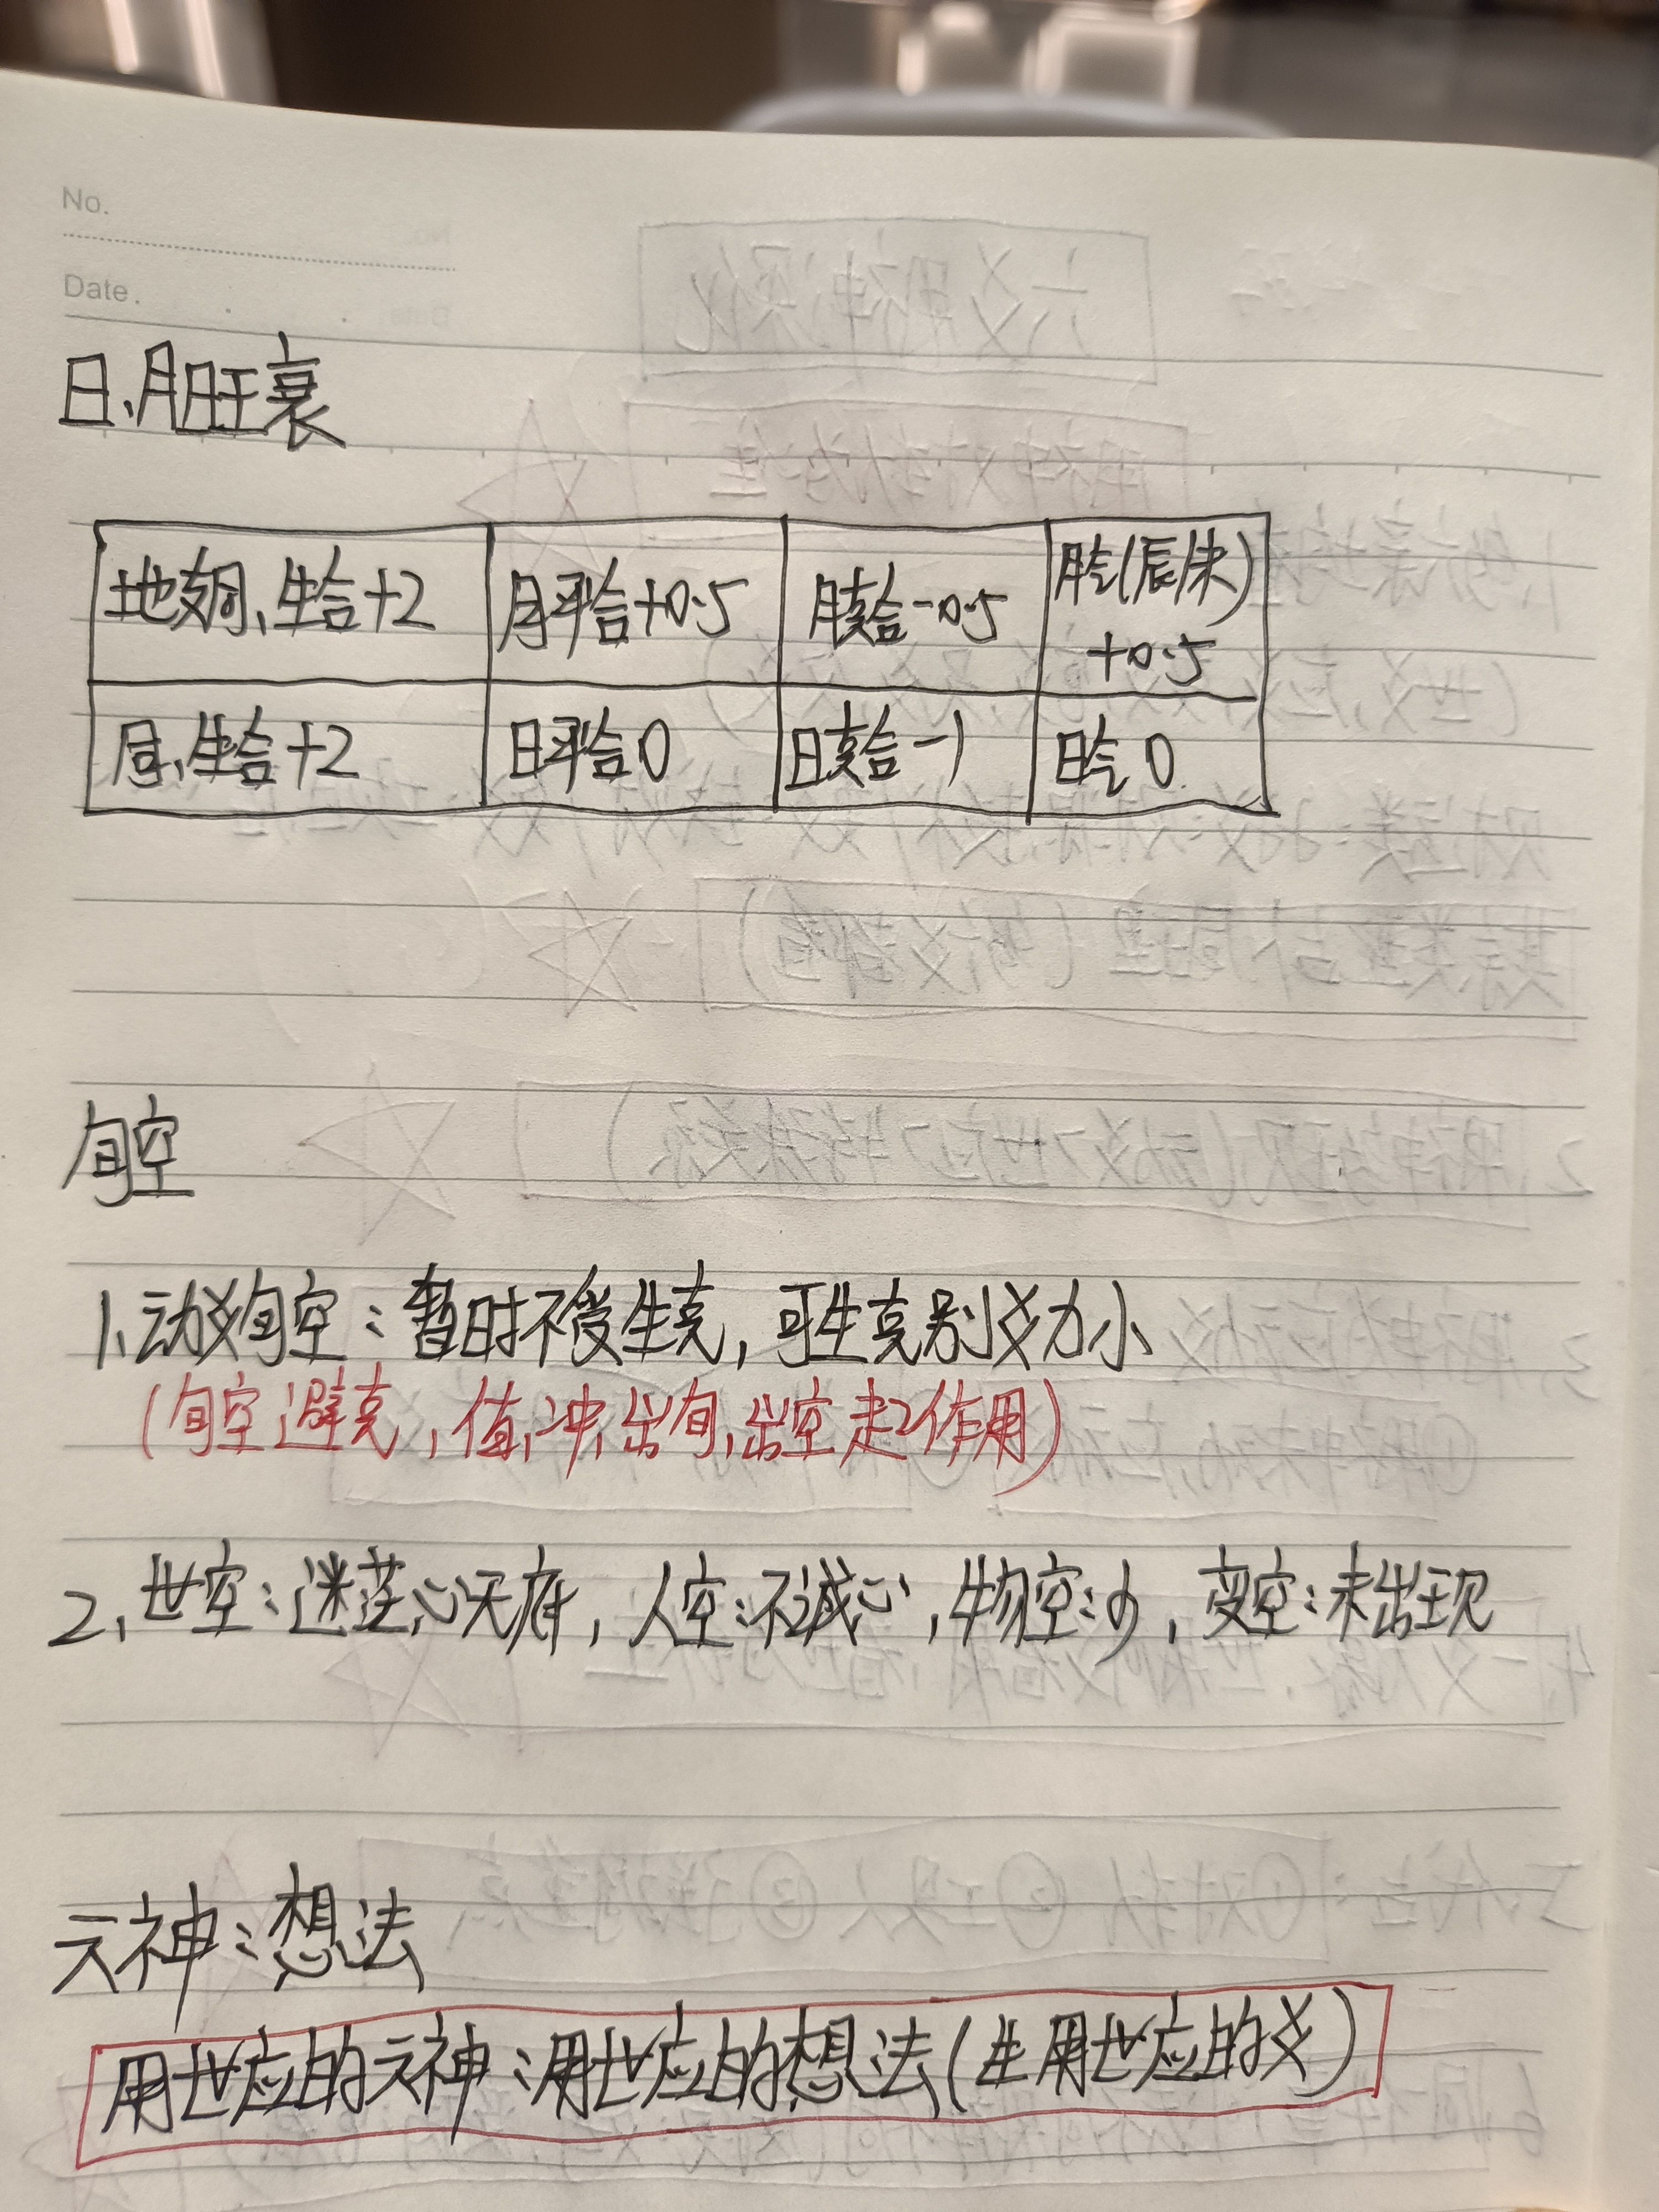 No.
Date.
日、月旺衰
地支同、生合+2 月平合+0.5 月克合-0.5 月气(辰/未)+0.5
同、生合+2 日平合0 日克合-1 日气0
旬空
1、动爻旬空：暂时不受生克，可生克别爻力小
(旬空避克，值、冲、出旬、出空起作用)
2、世空：迷茫心无底，人空：不诚心，物空：少，变空：未出现
元神：想法
用世应的元神：用世应的想法(生用世应的爻)